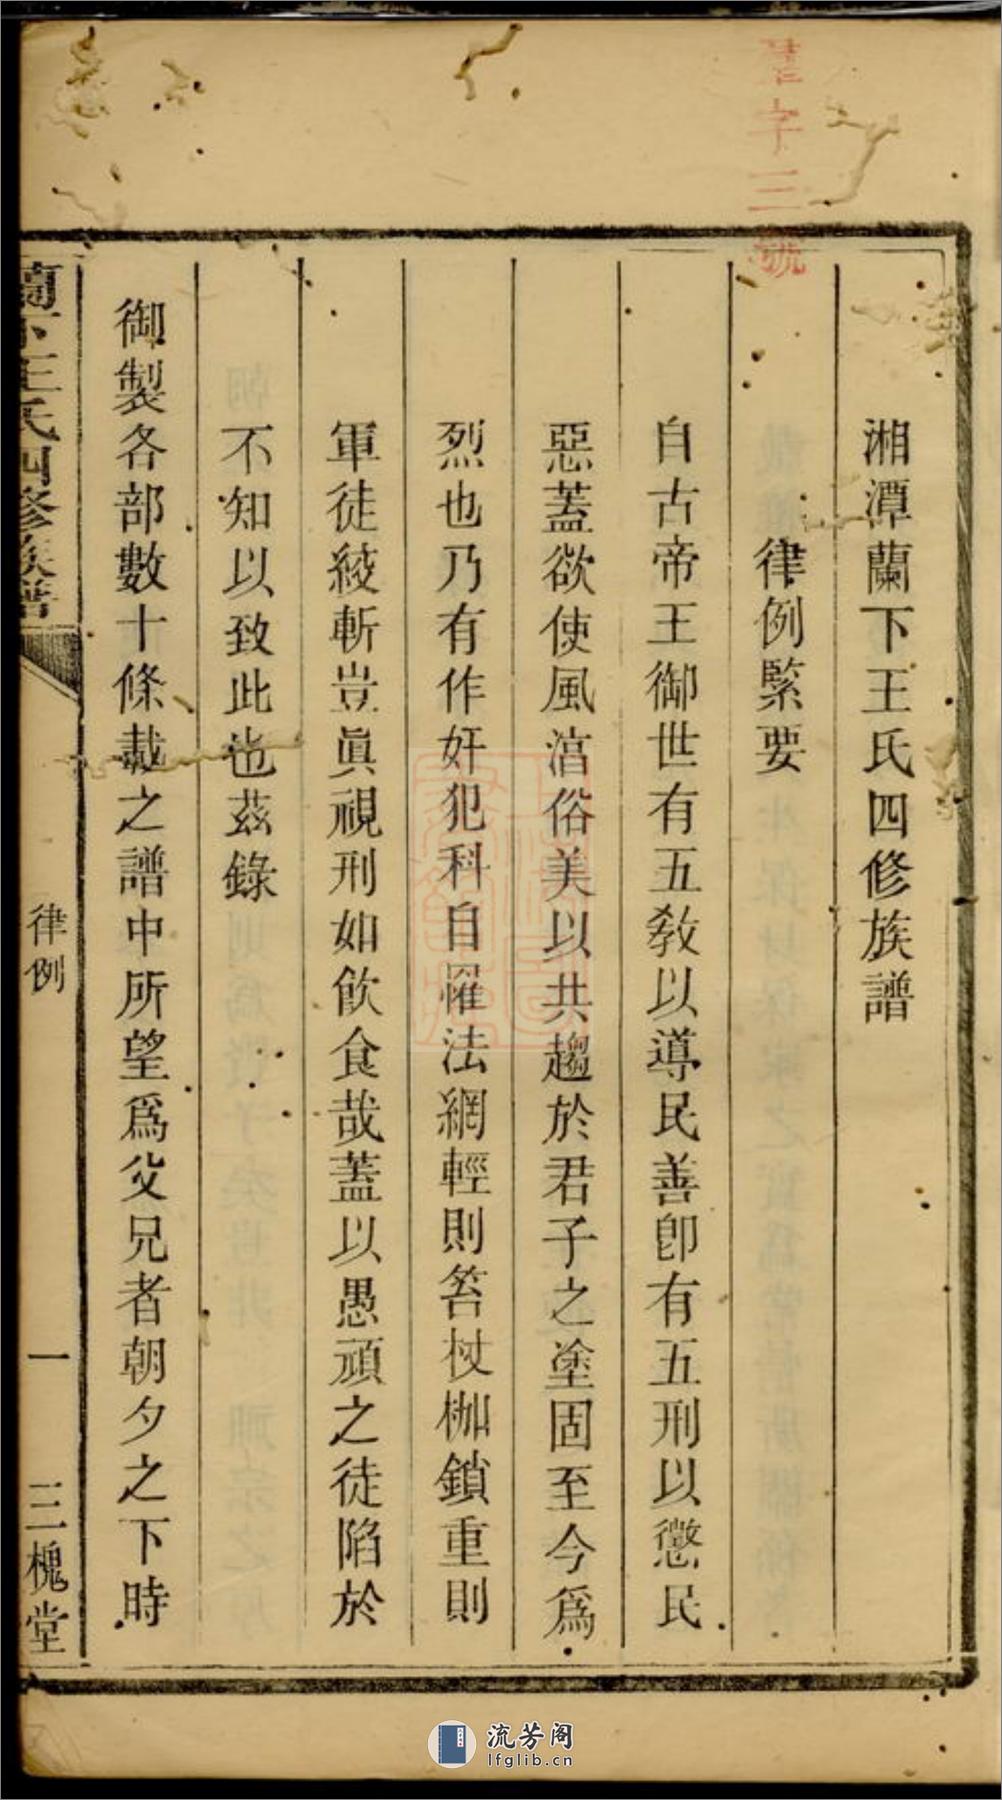 湘潭蘭下王氏四修族譜
律例緊要
自古帝王御世有五教以導民善卽有五刑以懲民
惡蓋欲使風湻俗美以共趨於君子之塗固至今爲
烈也乃有作奸犯科自罹法網輕則笞杖枷鎖重則
軍徒絞斬豈眞視刑如飮食哉蓋以愚頑之徒陷於
不知以致此也茲錄
御製各部數十條載之譜中所望爲父兄者朝夕之下時
蘭下王氏四修族譜
律例
一
三槐堂
字三號
流芳阁
lfglib.cn